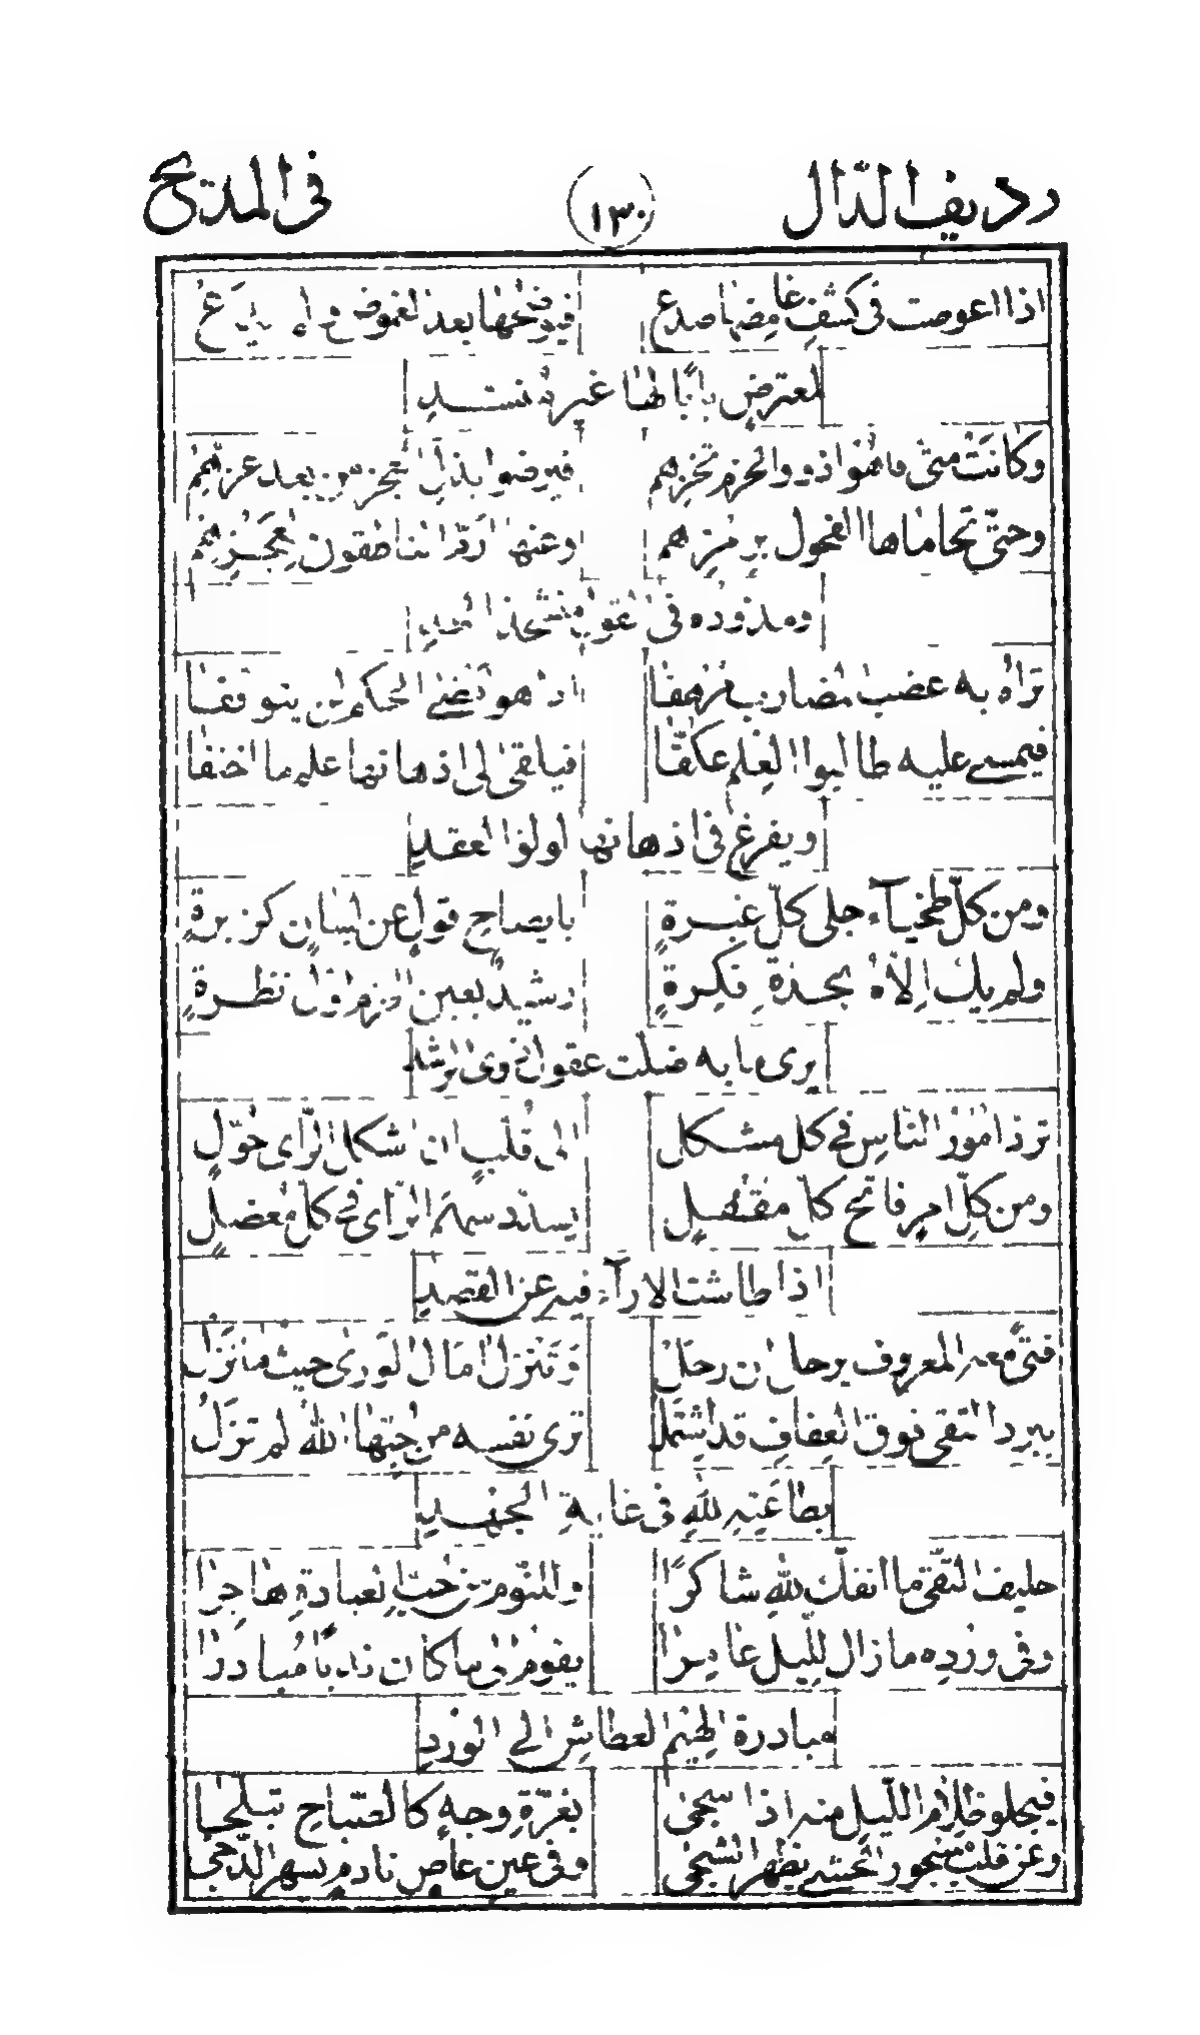 رديف الدّال (١٣٠) في المديح
اذا اعوصت في كشف غامضها صدع فيوضحها بعد الغموض
لمعترض بابًا لها غير منسدِ
وكانت متى ماهوا ذوو الحزم تخزهم فيرضوا بذل العجز من بعد عزهم
وحتّى تحاماها الفحول برمزهم وعنها ارتدّ الناطقون لعجزهم
ومذوده في عقوله
تراه به عضب المضارب مرهفا اذ هو نضى الحكم لن يتوقفا
فيمسي عليه طالبوا العلم عكّفا فيلقى الى اذهانها علم ما اختفا
ويفرغ في اذهانها اولوا العقدِ
ومن كلّ طخيآء جلى كلّ غبرةٍ بايضاح قولٍ عن لسان كزبرةٍ
ولم يك الّاه بحدّة فكرةٍ رشيدٌ بعين الحزم اوّل نظرةٍ
يرى ما به ضلت عقول ذوي الرشدِ
تردّ امور الناس في كل مشكل الى قلّبٍ ان اشكل الرّأى حوّلِ
ومن كلّ امرٍ فاتح كل مقفلِ يسدّد سهم الرّأى في كل معضلِ
اذا طاشت الارآء فيه عن القصدِ
فتىً معه المعروف يرحل ان رحل وتنزل امال الورى حيث ما نزل
ببرد التقى فوق العفاف قد اشتمل ترى نفسه من حبّها الله لم تزل
بطاعته لله في غاية الجهدِ
حليف التّقى ما انفك لله شاكرًا وللنّوم من حبّ العبادة هاجرا
وفي ورده مازال لليل عامرا يقوم الى ما كان ندبًا مبادرا
مبادرة الهيم العطاش الى الوردِ
فيجلو ظلام اللّيل منه اذا سجى بغرّة وجهٍ كالصباح تبلّجا
وعن قلب مسجور الحشى يظهر الشجى وفي عين عاصٍ نادم يسهر الدّجى